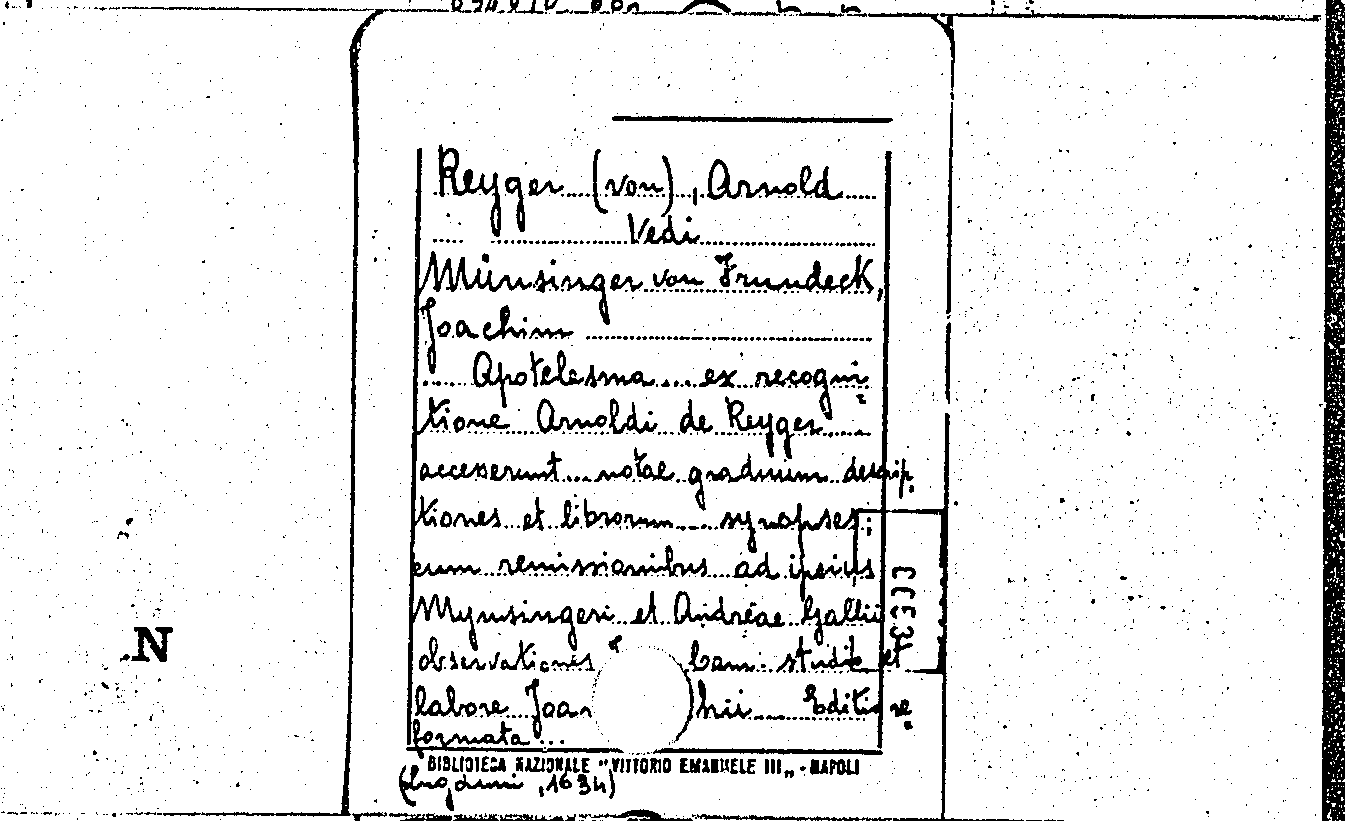 Reyger (von), Arnold
Vedi
Münsinger von Frundeck,
Joachim
... Apotelesma ... ex recogni=
tione Arnoldi de Reyger ...
accesserunt ... notae graduum descrip=
tiones et librorum ... synopses:
cum remissionibus ad ipsius
Mynsingeri et Andreae Gallii
observationes studio et
labore Editio re=
formata ...
BIBLIOTECA NAZIONALE "VITTORIO EMANUELE III„ - NAPOLI
(Lugduni, 1634)
N